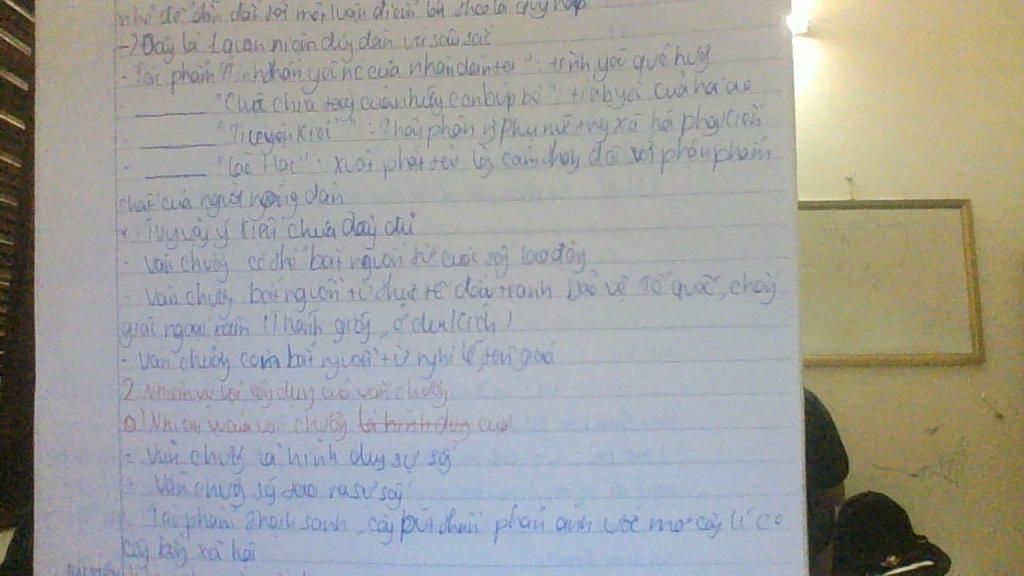 nhỏ để dẫn dắt tới một luận điểm lớn theo lối quy nạp
-> Đây là 1 quan niệm đúng đắn và sâu sắc
- Tác phẩm "Tinh thần yêu nc của nhân dân ta": tình yêu quê hg
"Cuộc chia tay của những con búp bê": tình yêu của hai ae
- "Truyện Kiều": thân phận phụ nữ trong xã hội phong kiến
- "Lão Hạc": xuất phát từ lòng cảm thay đối với phận phẩm
chất của người nông dân
* Tuy vậy ý kiến chưa đầy đủ
- Văn chương có thể bắt nguồn từ cuộc sống lao động
- Văn chương bắt nguồn từ thực tế đấu tranh bảo vệ Tổ quốc, chống
giặc ngoại xâm (Thánh gióng,
- Văn chương còn bắt nguồn từ nghi lễ, tôn giáo
2. Nhiệm vụ và công dụng của văn chương
a) Nhiệm vụ của văn chương là hình dung của
- Văn chương là hình dung sự sống
- Văn chương sáng tạo ra sự sống
- Tác phẩm Thạch sanh, cây bút thần phản ánh ước mơ công lí có
công bằng xã hội